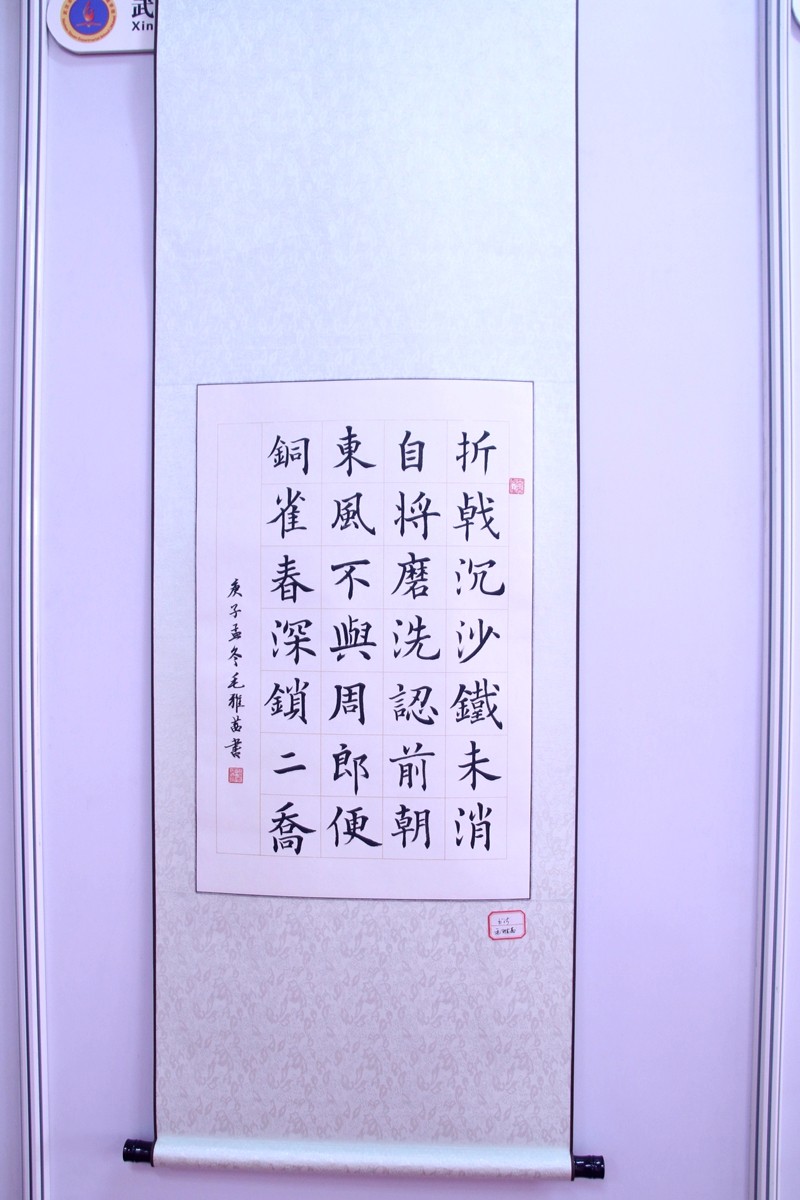 折戟沉沙鐵未消
自将磨洗認前朝
東風不與周郎便
銅雀春深鎖二喬
庚子孟冬毛雅茜書
武
Xin